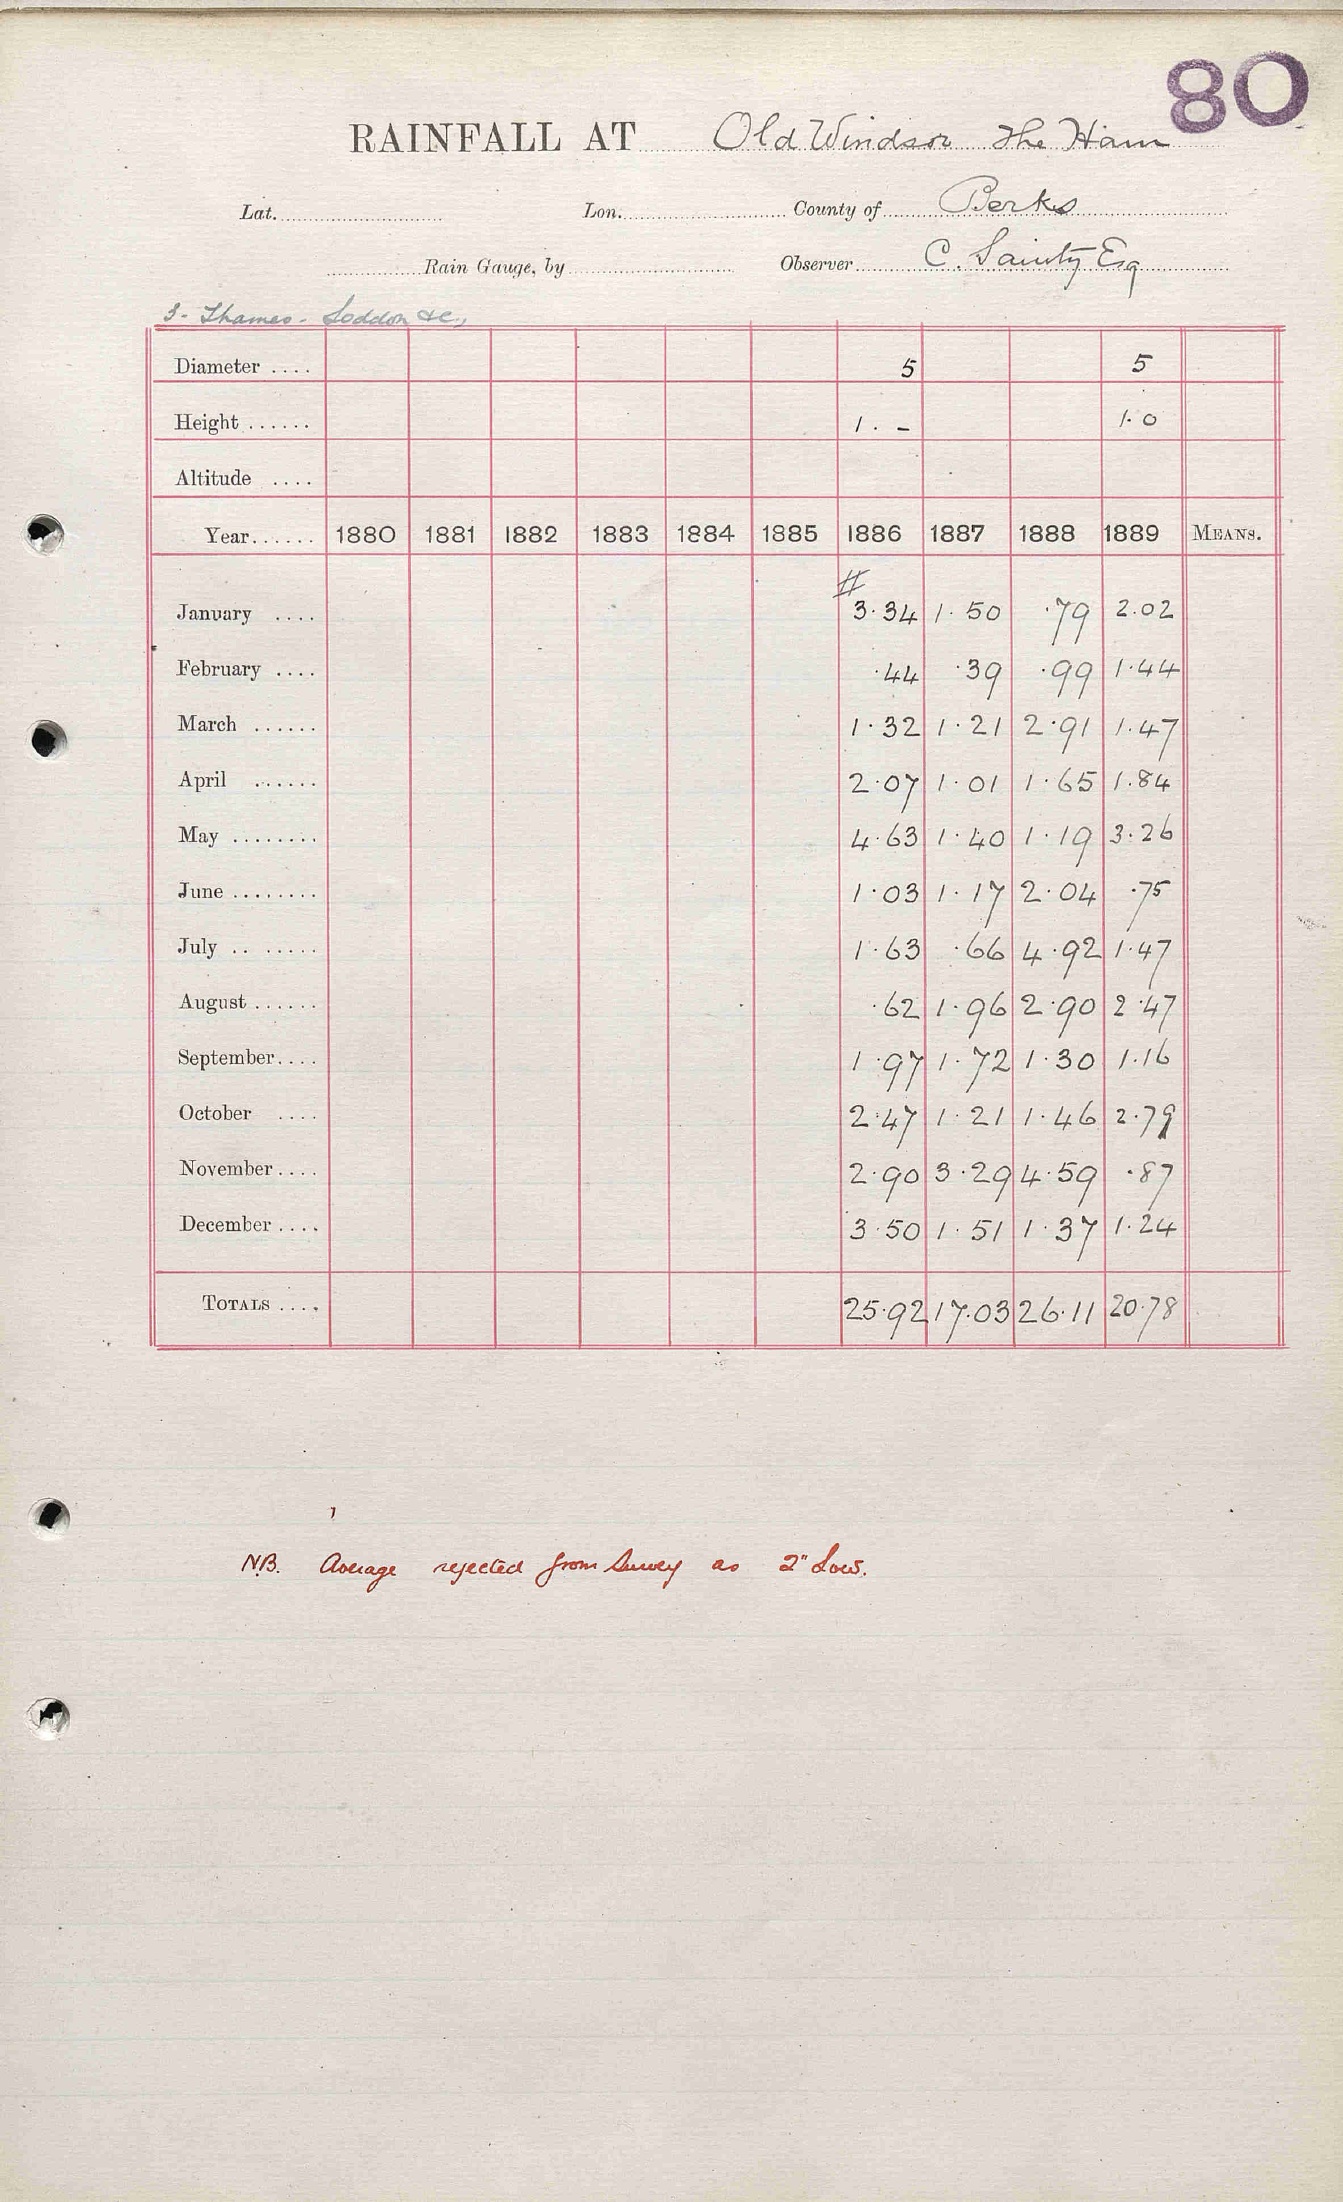 80
RAINFALL AT Old Windsor The Ham
Lat. Lon. County of Berks
Rain Gauge, by Observer C. Sainty Esq
3. Thames. Loddon &c.,
Diameter .... 5 5
Height ...... 1. - 1.0
Altitude ....
Year...... 1880 1881 1882 1883 1884 1885 1886 1887 1888 1889 MEANS.
#
January .... 3.34 1.50 .79 2.02
February .... .44 .39 .99 1.44
March ...... 1.32 1.21 2.91 1.47
April ...... 2.07 1.01 1.65 1.84
May ........ 4.63 1.40 1.19 3.26
June ........ 1.03 1.17 2.04 .75
July .. ...... 1.63 .66 4.92 1.47
August ...... .62 1.96 2.90 2.47
September.... 1.97 1.72 1.30 1.16
October .... 2.47 1.21 1.46 2.79
November.... 2.90 3.29 4.59 .87
December .... 3.50 1.51 1.37 1.24
TOTALS .... 25.92 17.03 26.11 20.78
N.B. Average rejected from Survey as 2" Low.